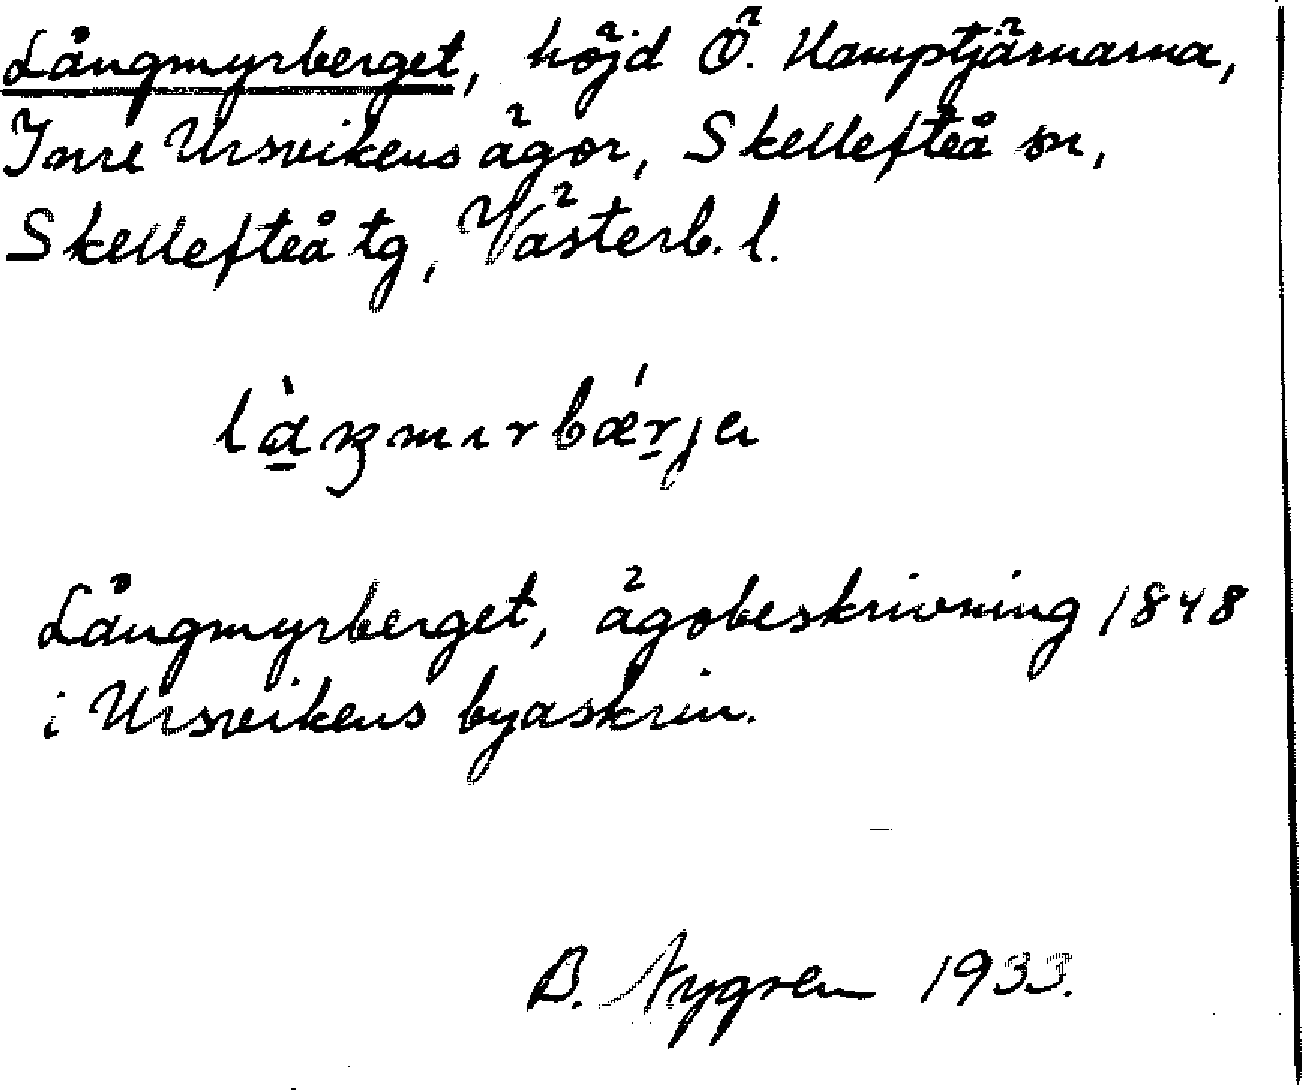 Långmyrberget, höjd Ö. Kamptjärnarna,
Inre Ursvikens ägor, Skellefteå sn,
Skellefteå tg, Västerb. l.
Långmyrberget, ägobeskrivning 1848
i Ursvikens byaskrin.
B. Nygren 1933.